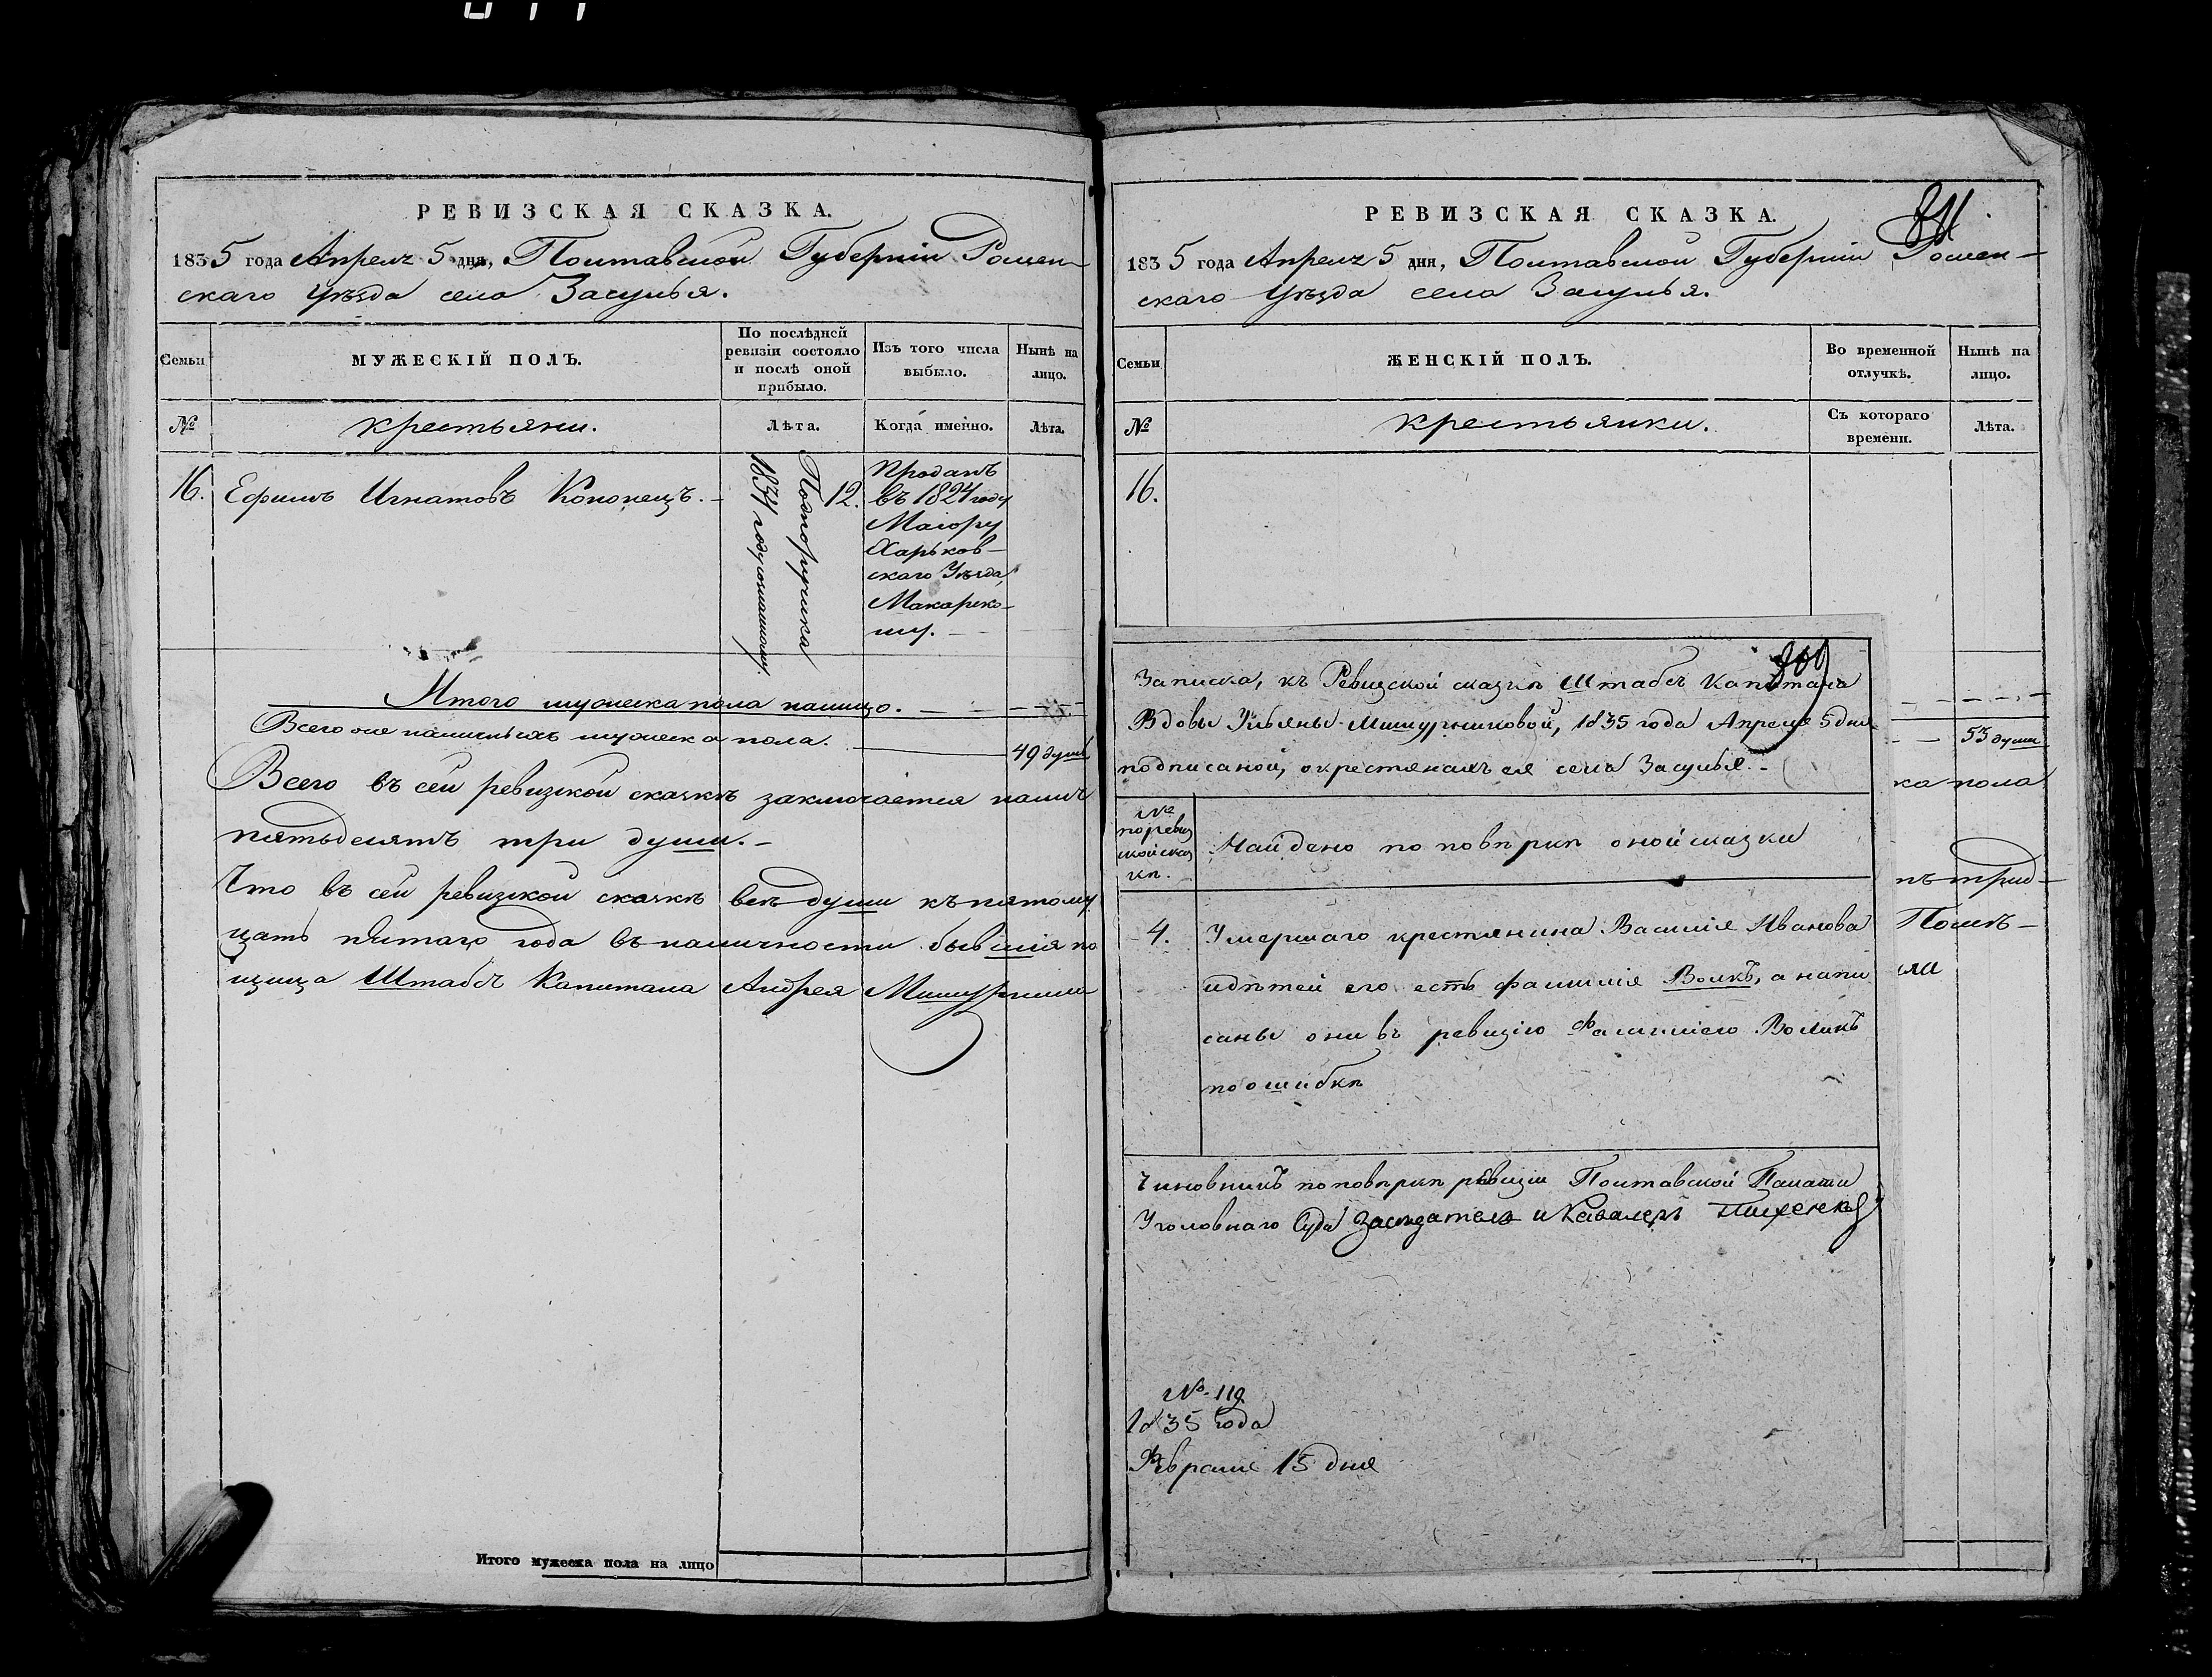 РЕВИЗСКАЯ СКАЗКА.
1835 года Апреля 5 дня, Полтавской Губернiи Ромен-
скаго Уѣзда села Засулья.
Семьи
МУЖЕСКIЙ ПОЛЪ.
По послѣдней ревизiи состояло и послѣ оной прибыло.
Изъ того числа выбыло.
Нынѣ на лицо.
№
крестьяни.
Лѣта.
Когда именно.
Лѣта.
16.
Ефимъ Игнатовъ Кононецъ.-
12.
Проданъ
въ 1824 году
Маiору
Харьков-
скаго Уѣзда,
Макарско-
му.
Подпоручика
Итого мужеска пола налицо.
Всего же наличныхъ мужеска пола.
49 душъ
Всего въ сей ревизской сказкѣ заключается налич
пятьдесятъ три души.-
Что въ сей ревизской сказкѣ всѣ души къ пятому
цать пятаго года въ наличности бывшiя по
щица Штабсъ Капитана Андрея
Итого мужеска пола на лицо
РЕВИЗСКАЯ СКАЗКА.
811
1835 года Апреля 5 дня, Полтавской Губернiи Ромен-
скаго Уѣзда села Засулья.
Семьи
ЖЕНСКIЙ ПОЛЪ.
Во временной отлучкѣ.
Нынѣ на лицо.
№
крестьянки.
Съ котораго времени.
Лѣта.
16.
53 души
ка пола
ѣ трид-
Помѣ-
Записка, къ Ревизской сказкѣ Штабсъ Капитана
Вдовы Ульяны Мишурниковой, 1835 года Апреля 5 дня
подписаной, о крестянахъ ея села Засулья.-
№
по ревиз
ской сказ
кѣ.
Найдено по повѣркѣ оной сказки
4.
Умершаго крестянина Василiя Иванова
и дѣтей его есть фамилiя Волкъ, а напи
саны они въ ревизiю фамилiею
по ошибкѣ
Чиновникъ по повѣркѣ ревизiи Полтавской Палаты
Уголовнаго Суда Засѣдатель и Кавалеръ
№ 119
1835 года
Февраля 15 дня